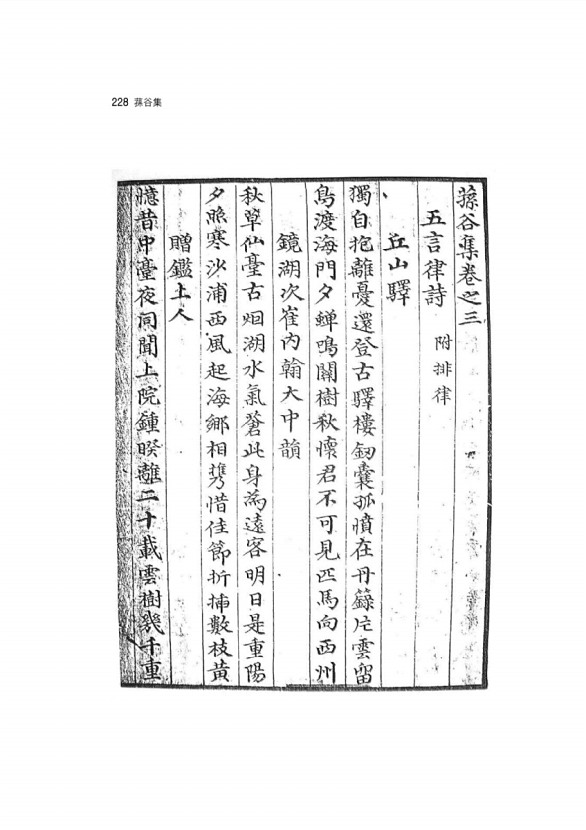 228 蓀谷集
蓀谷集卷之三
五言律詩 附排律
丘山驛
獨自抱離憂還登古驛樓釼囊孤憤在丹籙片雲留
鳥渡海門夕蟬鳴關樹秋懷君不可見匹馬向西州
鏡湖次崔內翰大中韻
秋草仙臺古烟湖水氣蒼此身為遠客明日是重陽
夕照寒沙浦西風起海鄉相携惜佳節折揷數枝黃
贈鑑上人
憶昔中臺夜同聞上院鍾暌離二十載雲樹幾千重